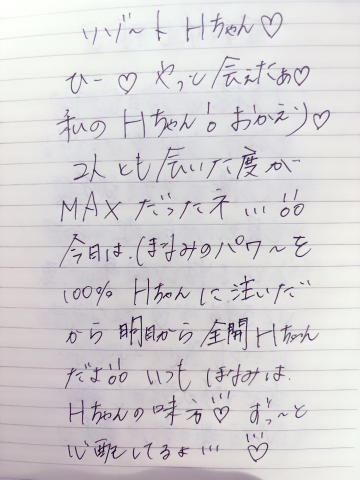 リゾート Hちゃん♡
ひー♡ やっと会えたぁ♡
私の Hちゃん!! おかえり♡
2人とも会いた度が
MAX だったネ…!!
今日は、ほなみのパワ〜を
100% Hちゃんに注いだ
から 明日から 全開 Hちゃん
だよ!! いつも ほなみは、
Hちゃんの味方♡ ずっ〜と
心配してるよ… ♡